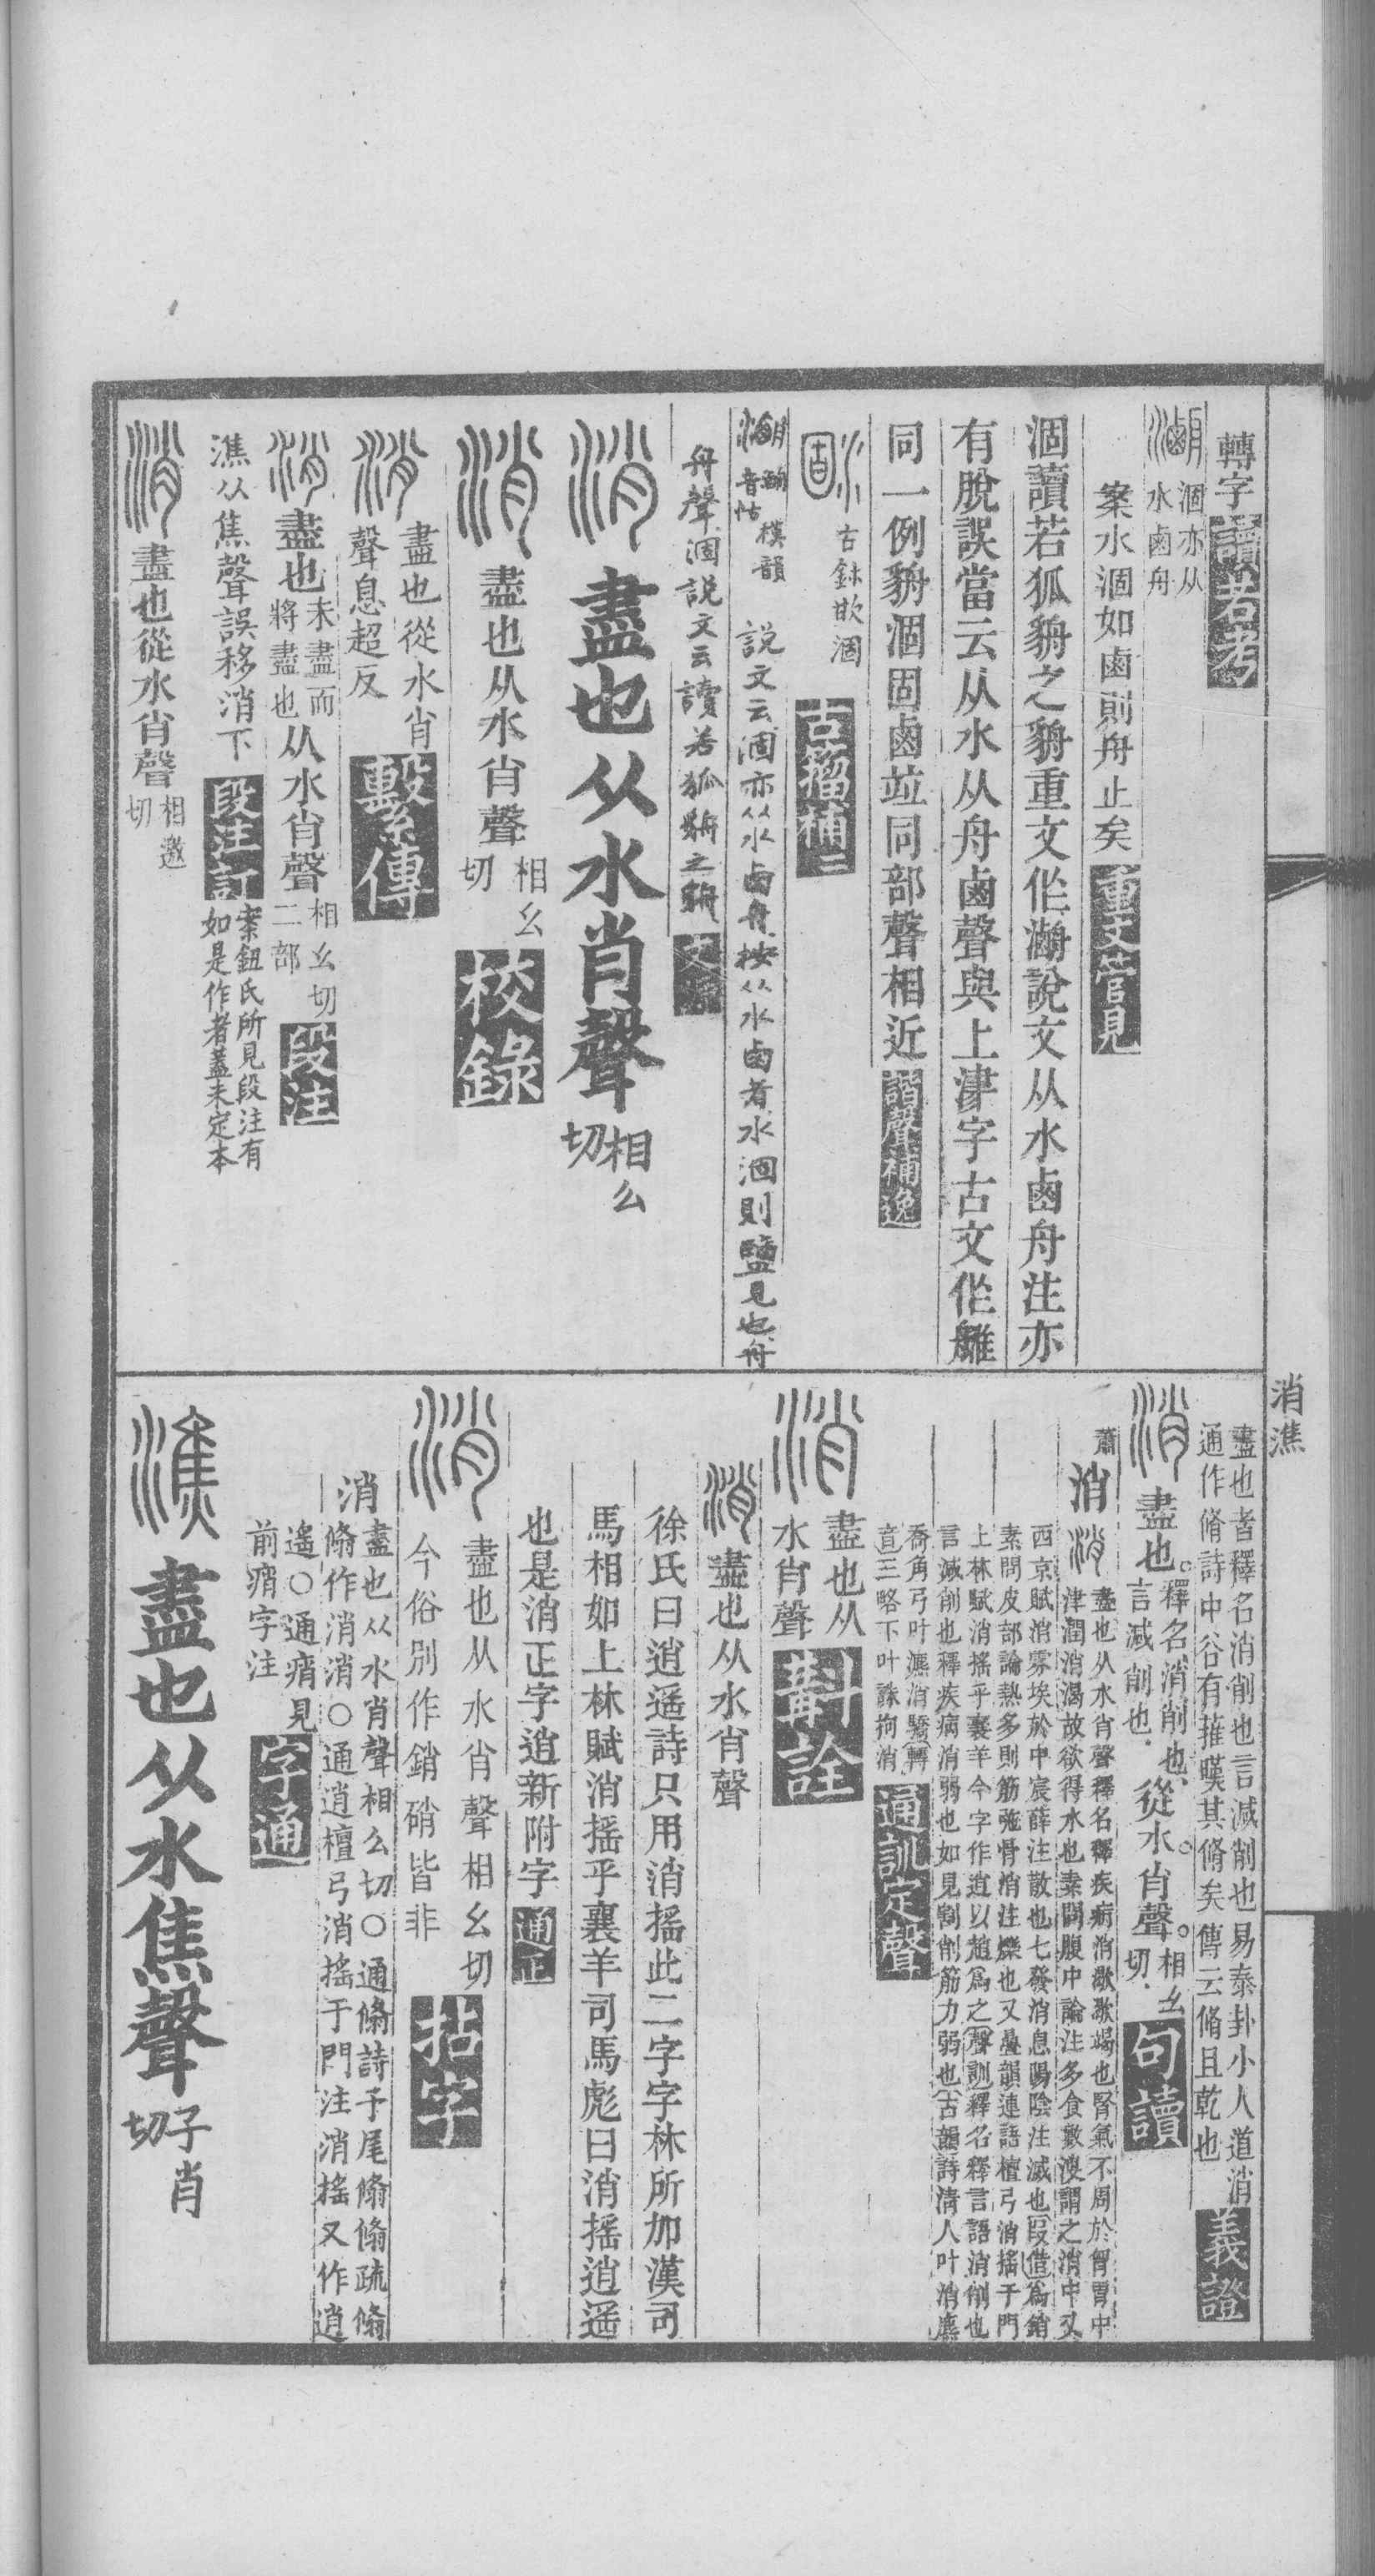 轉字讀若考
涸亦从
水鹵舟
案水涸如鹵則舟止矣重文管見
涸讀若狐貈之貈重文作㴶說文从水鹵舟注亦
有脫誤當云从水从舟鹵聲與上津字古文作
同一例貈涸固鹵竝同部聲相近諧聲補逸
古鉢㱃涸古籀補二
音怙
模韻
說文云涸亦从水鹵舟按从水鹵者水涸則鹽見也舟
舟聲涸說文云讀若狐貈之貈
消盡也从水肖聲相幺切
消盡也从水肖聲相幺切校錄
消盡也從水肖
聲息超反繫傳
消盡也未盡而將盡也从水肖聲相幺切二部段注
潐从焦聲誤移消下段注訂案鈕氏所見段注有如是作者蓋未定本
消盡也從水肖聲相邀切
消潐
盡也者釋名消削也言減削也易泰卦小人道消
通作脩詩中谷有蓷暵其脩矣傳云脩且乾也義證
消盡也釋名消削也言減削也從水肖聲相幺切句讀
蕭
消消盡也从水肖聲釋名釋疾病消㵣㵣渴也腎氣不周於胷胃中
津潤消渴故欲得水也素問腹中論注多食數溲謂之消中又
西京賦消雰埃於中宸薛注散也七發消息陽陰注滅也叚借為銷
素問皮部論熱多則筋弛骨消注爍也又疊韻連語檀弓消搖于門
上林賦消搖乎襄羊今字作逍以趙為之聲訓釋名釋言語消削也
言減削也釋疾病消弱也如見割削筋力弱也古韻詩清人叶消麃
喬角弓叶瀌消驕轉
音三略下叶誅拘消通訓定聲
消盡也从
水肖聲斠詮
消盡也从水肖聲
徐氏曰逍遥詩只用消搖此二字字林所加漢司
馬相如上林賦消搖乎襄羊司馬彪曰消搖逍遥
也是消正字逍新附字通正
消盡也从水肖聲相幺切
今俗別作銷硝皆非拈字
消盡也从水肖聲相么切○通脩詩予尾翛翛疏翛
翛作消消○通逍檀弓消搖于門注消搖又作逍
遙○通痟見
前痟字注字通
潐盡也从水焦聲子肖切